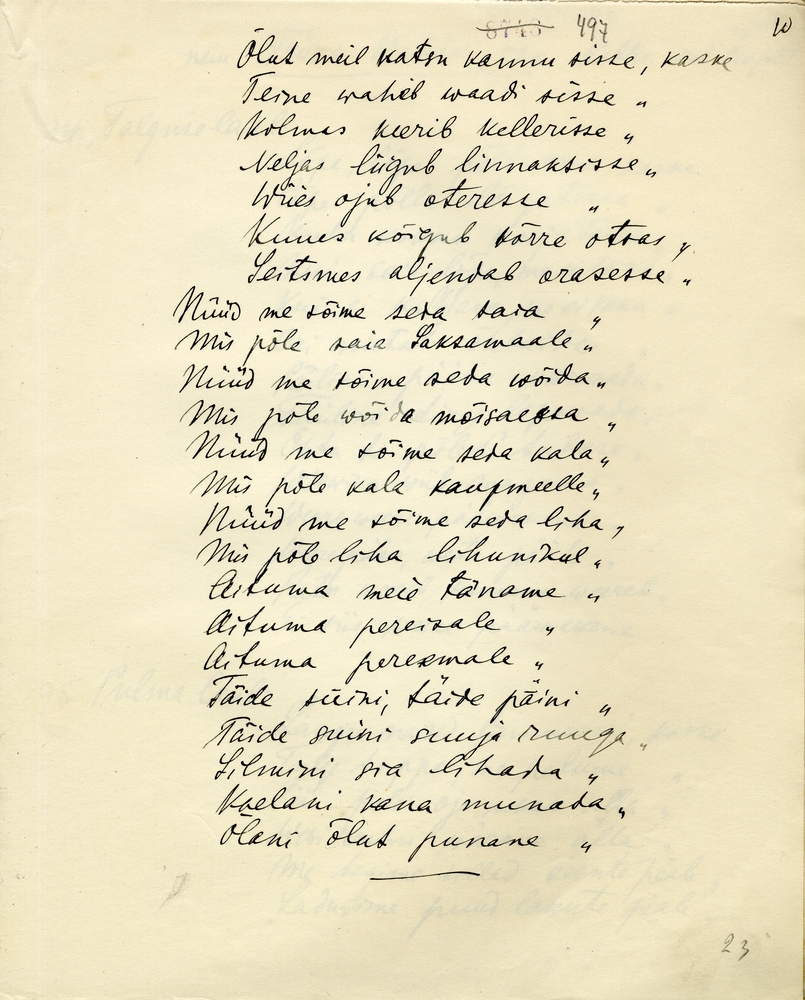 497
10
Õlut meil katsu kannu sisse, kaske
Teine waheb waadi sisse "
Kolmas keerib kellerisse "
Neljas liigub linnaksisse "
Wiies ojub oteresse "
Kuues kõigub kõrre otsas "
Seitsmes aljendab orasesse "
Nüüd me sõime seda saia "
Mis põle saia Saksamaale "
Nüüd me sõime seda wõida "
Mis põle wõida mõisaessa "
Nüüd me sõime seda kala "
Mis põle kala kaupmeelle "
Nüüd me sõime seda liha "
Mis põle liha lihunikul "
Aituma meie täname "
Aituma pereisale "
Aituma peremale "
Täide süini, täide päini "
Täide suini suuja ruuga "
Silmini sia lihada "
Kaelani kana munada "
Õlani õlut punane "
23